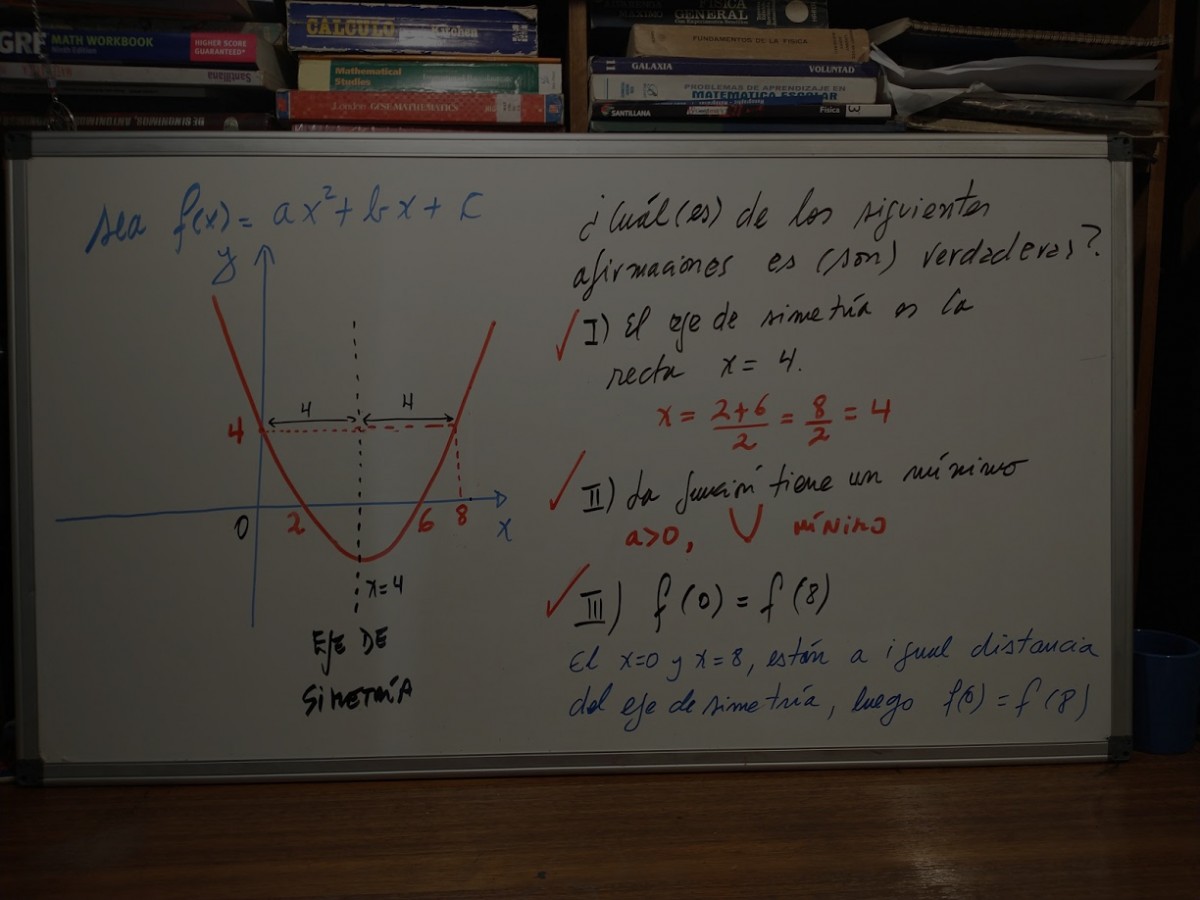 GRE MATH WORKBOOK
HIGHER SCORE
GUARANTEED*
Santillana
CALCULO
Mathematical
Studies
London GCSE MATHEMATICS
FÍSICA
GENERAL
FUNDAMENTOS DE LA FISICA
11 GALAXIA VOLUNTAD
PROBLEMAS DE APRENDIZAJE EN
MATEMATICA ESCOLAR
SANTILLANA
Física 3
sea f(x) = ax² + bx + c
y
4 4
4
0 2 6 8 x
x = 4
EJE DE
SIMETRÍA
¿Cuál(es) de las siguientes
afirmaciones es (son) verdaderas?
✓ I) El eje de simetría es la
recta x = 4.
x = (2+6)/2 = 8/2 = 4
✓ II) La función tiene un mínimo
a>0, ∪ MÍNIMO
✓ III) f(0) = f(8)
El x=0 y x=8, están a igual distancia
del eje de simetría, luego f(0) = f(8)